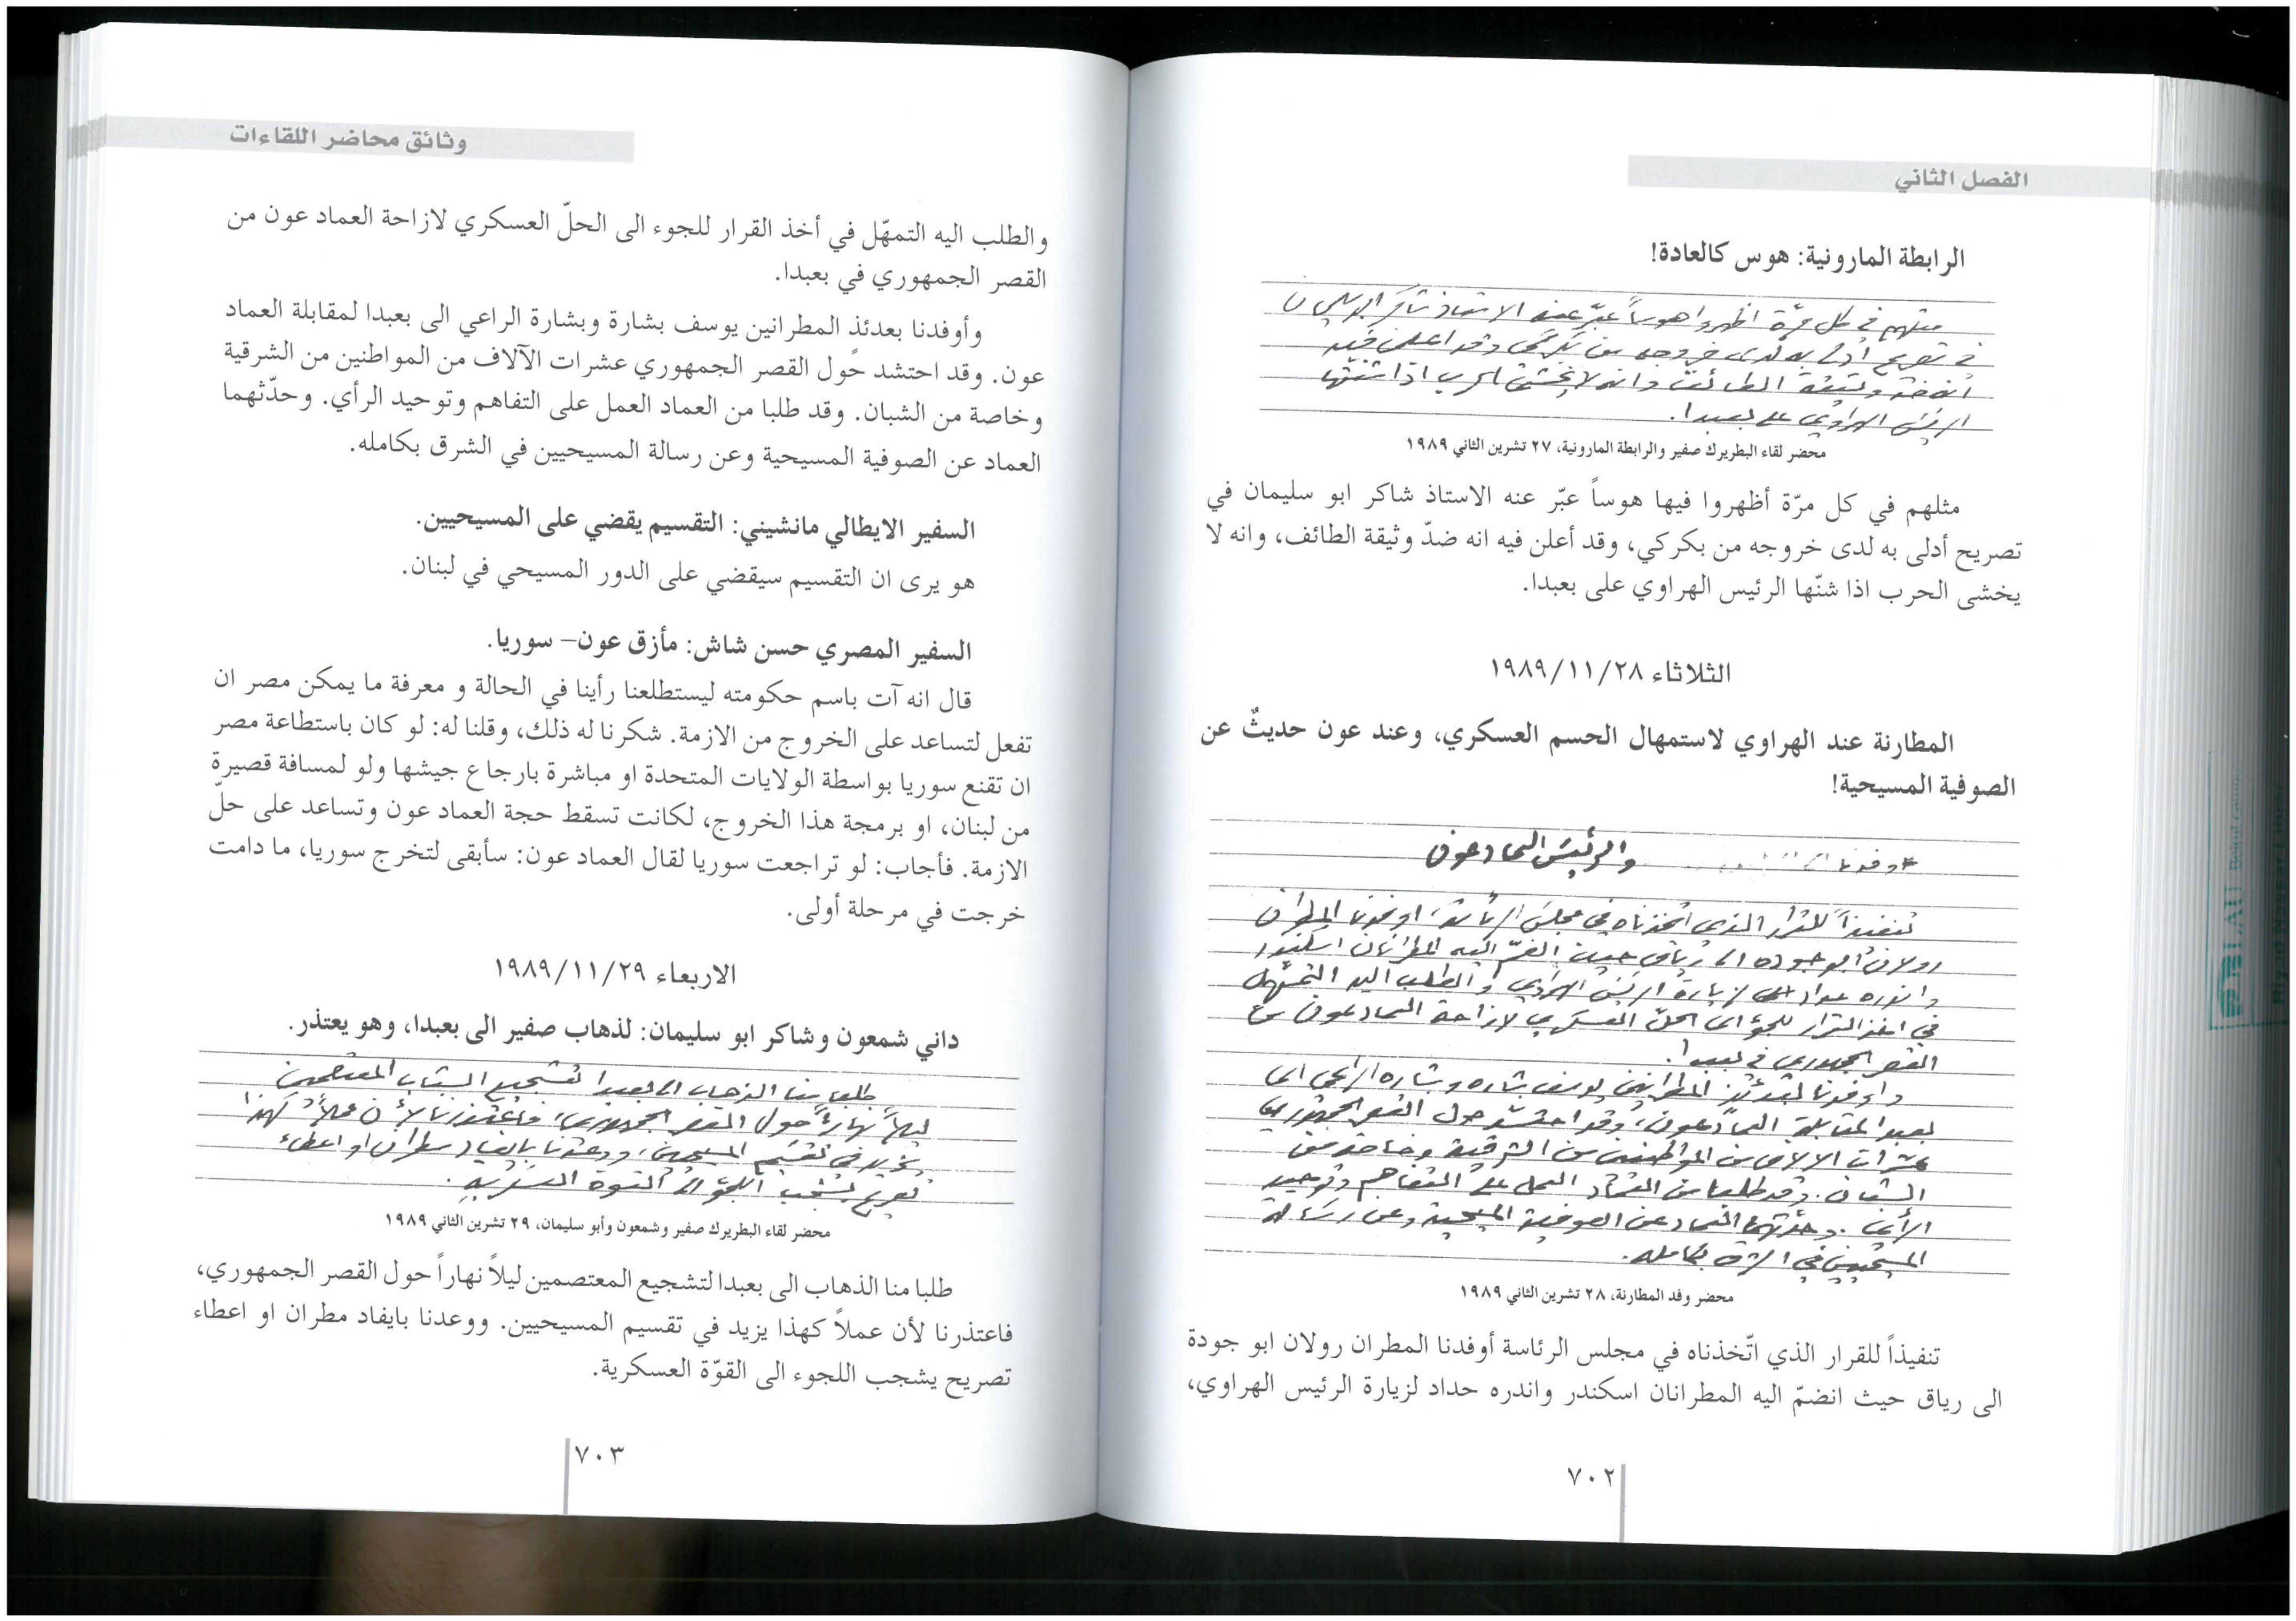 الفصل الثاني
الرابطة المارونية: هوس كالعادة!
مثلهم في كل مرّة اظهروا هوساً عبّر عنه الاستاذ شاكر ابو سليمان
في تصريح أدلى به لدى خروجه من بكركي وقد اعلن فيه
انه ضد وثيقة الطائف وانه لا يخشى الحرب اذا شنّها
الرئيس الهراوي على بعبدا.
محضر لقاء البطريرك صفير والرابطة المارونية، ٢٧ تشرين الثاني ١٩٨٩
مثلهم في كل مرّة أظهروا فيها هوساً عبّر عنه الاستاذ شاكر ابو سليمان في
تصريح أدلى به لدى خروجه من بكركي، وقد أعلن فيه انه ضدّ وثيقة الطائف، وانه لا
يخشى الحرب اذا شنّها الرئيس الهراوي على بعبدا.
الثلاثاء ١٩٨٩/١١/٢٨
المطارنة عند الهراوي لاستمهال الحسم العسكري، وعند عون حديثٌ عن
الصوفية المسيحية!
والرئيس العماد عون
تنفيذاً للقرار الذي اتخذناه في مجلس الرئاسة، اوفدنا المطران
رولان ابو جوده الى رياق حيث انضمّ اليه المطرانان اسكندر
واندره حداد لزيارة الرئيس الهراوي والطلب اليه التمهّل
في اخذ القرار للجوء الى الحلّ العسكري لازاحة العماد عون من
القصر الجمهوري في بعبدا.
واوفدنا بعدئذ المطرانين يوسف بشاره وبشاره الراعي الى
بعبدا لمقابلة العماد عون، وقد احتشد حول القصر الجمهوري
عشرات الالاف من المواطنين من الشرقية وخاصة من
الشبان. وقد طلبا من العماد العمل على التفاهم وتوحيد
الرأي. وحدّثهما العماد عن الصوفية المسيحية وعن رسالة
المسيحيين في الشرق بكامله.
محضر وفد المطارنة، ٢٨ تشرين الثاني ١٩٨٩
تنفيذاً للقرار الذي اتّخذناه في مجلس الرئاسة أوفدنا المطران رولان ابو جودة
الى رياق حيث انضمّ اليه المطرانان اسكندر واندره حداد لزيارة الرئيس الهراوي،
٧٠٢
وثائق محاضر اللقاءات
والطلب اليه التمهّل في أخذ القرار للجوء الى الحلّ العسكري لازاحة العماد عون من
القصر الجمهوري في بعبدا.
وأوفدنا بعدئذ المطرانين يوسف بشارة وبشارة الراعي الى بعبدا لمقابلة العماد
عون. وقد احتشد حول القصر الجمهوري عشرات الآلاف من المواطنين من الشرقية
وخاصة من الشبان. وقد طلبا من العماد العمل على التفاهم وتوحيد الرأي. وحدّثهما
العماد عن الصوفية المسيحية وعن رسالة المسيحيين في الشرق بكامله.
السفير الايطالي مانشيني: التقسيم يقضي على المسيحيين.
هو يرى ان التقسيم سيقضي على الدور المسيحي في لبنان.
السفير المصري حسن شاش: مأزق عون– سوريا.
قال انه آت باسم حكومته ليستطلعنا رأينا في الحالة و معرفة ما يمكن مصر ان
تفعل لتساعد على الخروج من الازمة. شكرنا له ذلك، وقلنا له: لو كان باستطاعة مصر
ان تقنع سوريا بواسطة الولايات المتحدة او مباشرة بارجاع جيشها ولو لمسافة قصيرة
من لبنان، او برمجة هذا الخروج، لكانت تسقط حجة العماد عون وتساعد على حلّ
الازمة. فأجاب: لو تراجعت سوريا لقال العماد عون: سأبقى لتخرج سوريا، ما دامت
خرجت في مرحلة أولى.
الاربعاء ١٩٨٩/١١/٢٩
داني شمعون وشاكر ابو سليمان: لذهاب صفير الى بعبدا، وهو يعتذر.
طلبا منا الذهاب الى بعبدا لتشجيع الشباب المعتصمين
ليلاً نهاراً حول القصر الجمهوري، فاعتذرنا لأن عملاً كهذا
يزيد في تقسيم المسيحيين، ووعدنا بايفاد مطران او اعطاء
تصريح يشجب اللجؤ الى القوة العسكرية.
محضر لقاء البطريرك صفير وشمعون وأبو سليمان، ٢٩ تشرين الثاني ١٩٨٩
طلبا منا الذهاب الى بعبدا لتشجيع المعتصمين ليلاً نهاراً حول القصر الجمهوري،
فاعتذرنا لأن عملاً كهذا يزيد في تقسيم المسيحيين. ووعدنا بايفاد مطران او اعطاء
تصريح يشجب اللجوء الى القوّة العسكرية.
٧٠٣